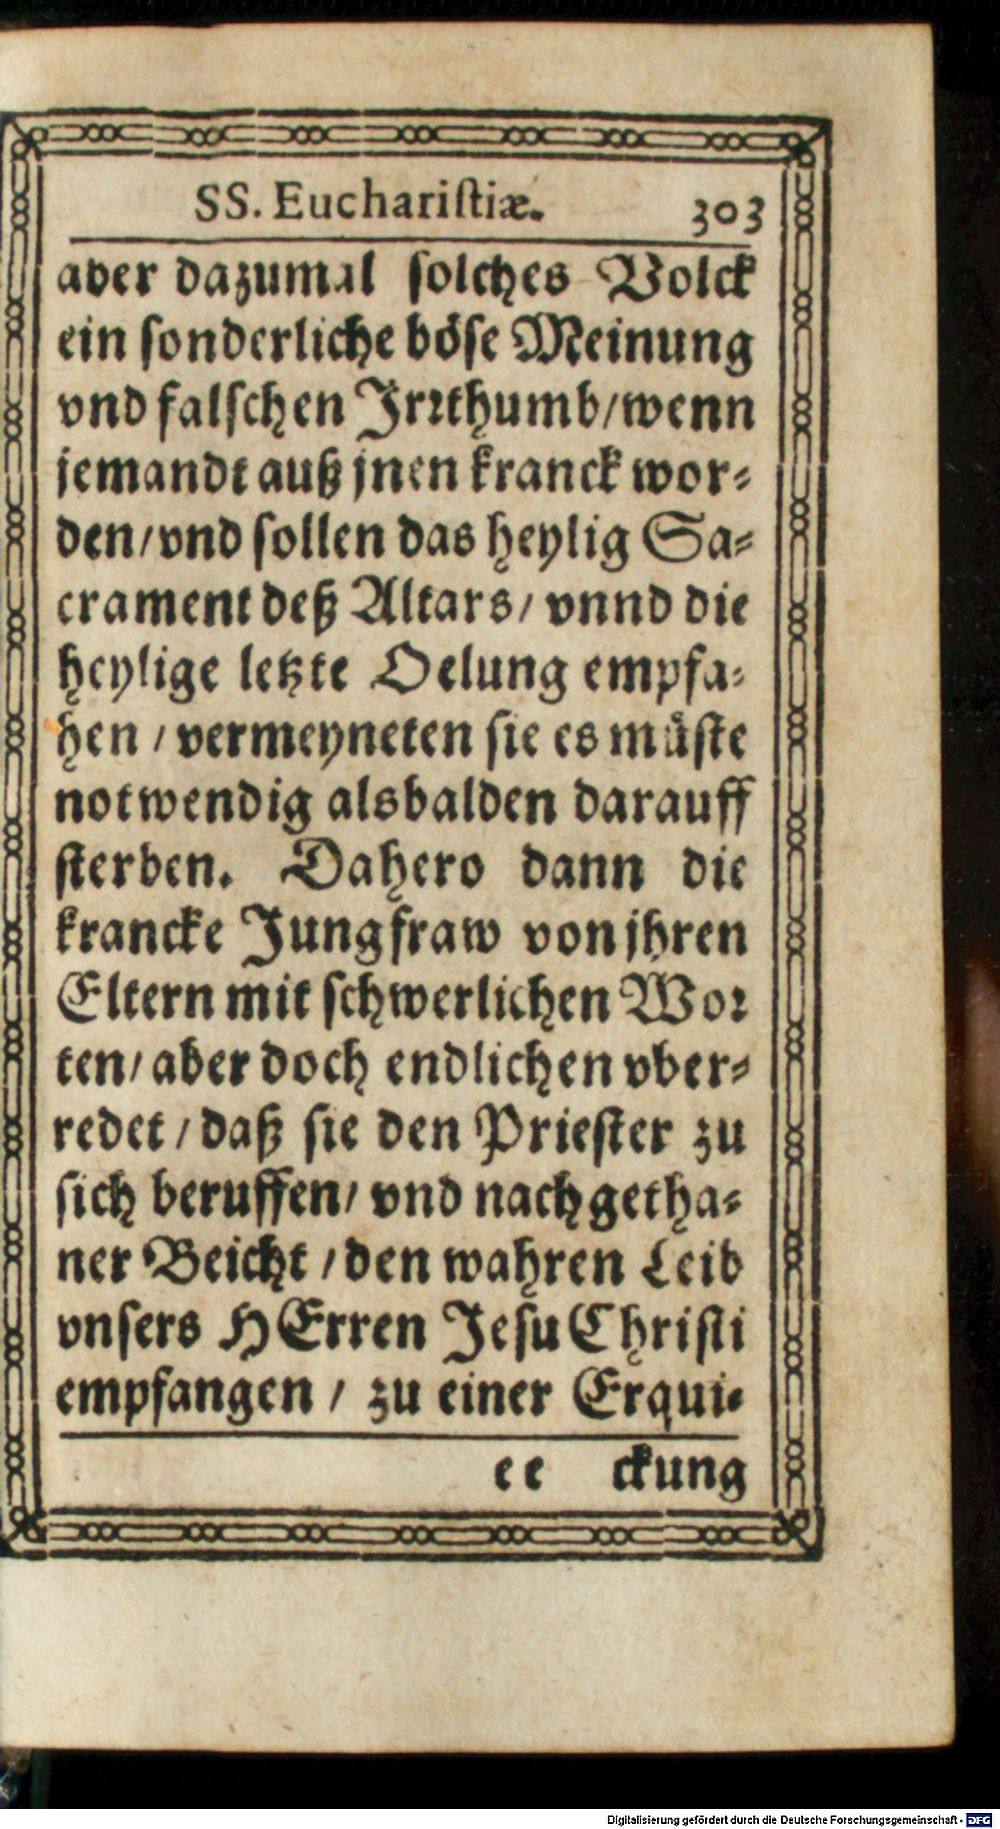 SS. Euchariſtiæ. 303
aber dazumal ſolches Volck
ein ſonderliche böſe Meinung
vnd falſchen Jrꝛthumb/wenn
jemandt auß jnen kranck wor⸗
den/vnd ſollen das heylig Sa⸗
crament deß Altars/ vnnd die
heylige letzte Oelung empfa⸗
hen / vermeyneten ſie es müſte
notwendig alsbalden darauff
ſterben. Dahero dann die
krancke Jungfraw von jhren
Eltern mit ſchwerlichen Woꝛ
ten/ aber doch endlichen vber⸗
redet / daß ſie den Prieſter zu
ſich beruffen/ vnd nach getha⸗
ner Beicht / den wahren Leib
vnſers HErren Jeſu Chriſti
empfangen / zu einer Erqui⸗
ee ckung
Digitalisierung gefördert durch die Deutsche Forschungsgemeinschaft - DFG